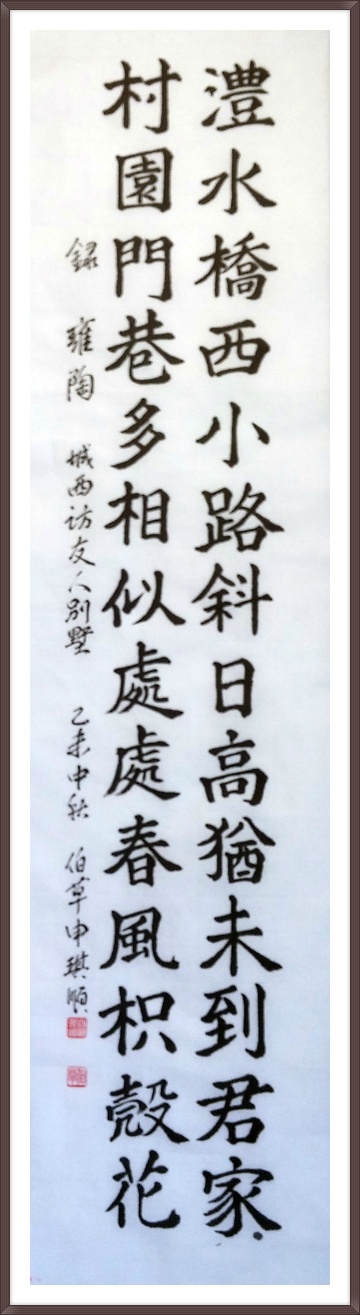 澧水橋西小路斜日高猶未到君家
村園門巷多相似處處春風枳殼花
録 雍陶 城西访友人别墅 乙未中秋 伯草申琪順